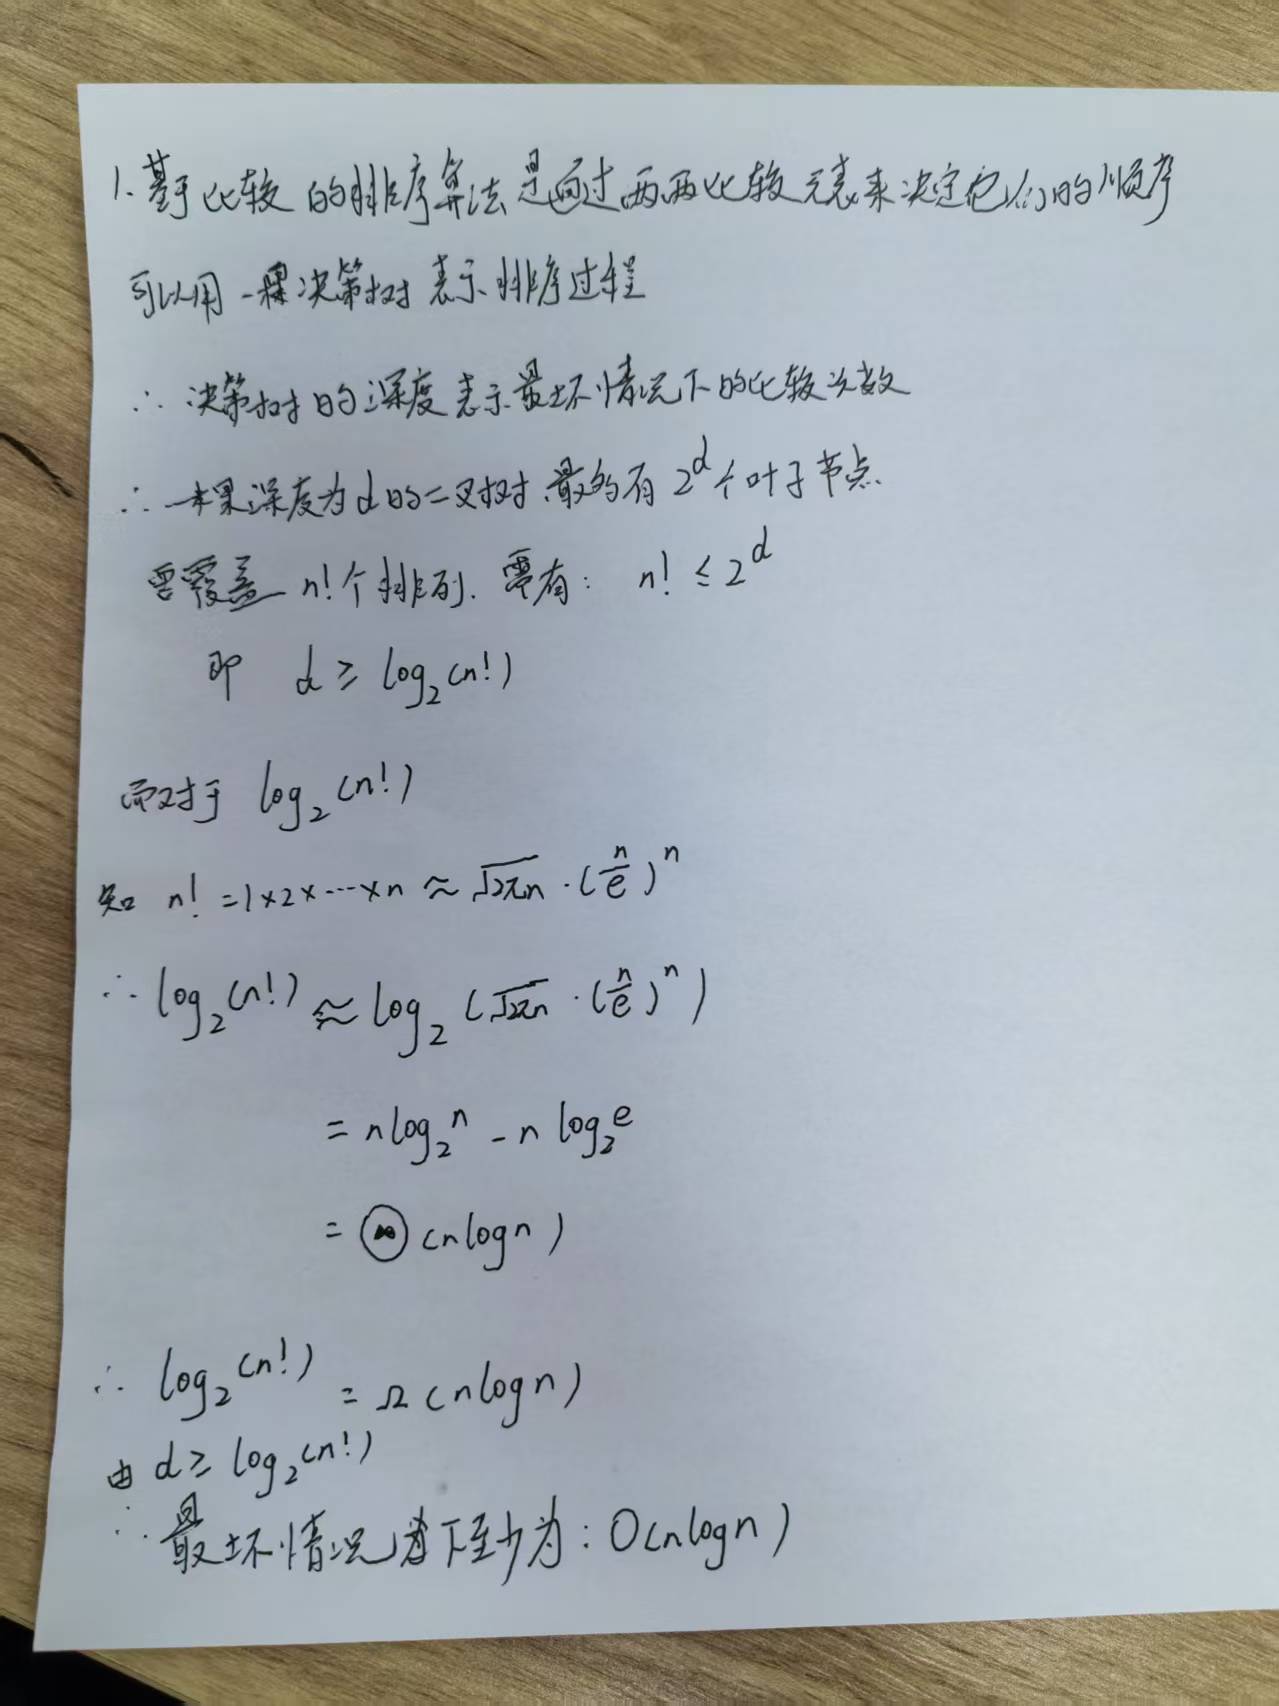 1. 基于比较的排序算法是通过两两比较元素来决定它们的顺序
可以用一棵决策树表示排序过程
∴ 决策树的深度表示最坏情况下的比较次数
∴ 一棵深度为d的二叉树,最多有 2^d 个叶子节点
需覆盖 n! 个排列. 需有: n! ≤ 2^d
即 d ≥ log₂(n!)
而对于 log₂(n!)
知 n! = 1×2×⋯×n ≈ √2πn · (n/e)^n
∴ log₂(n!) ≈ log₂(√2πn · (n/e)^n)
= nlog₂n - n log₂e
= Θ(nlogn)
∴ log₂(n!) = Ω(nlogn)
由 d ≥ log₂(n!)
∴ 最坏情况下至少为: O(nlogn)